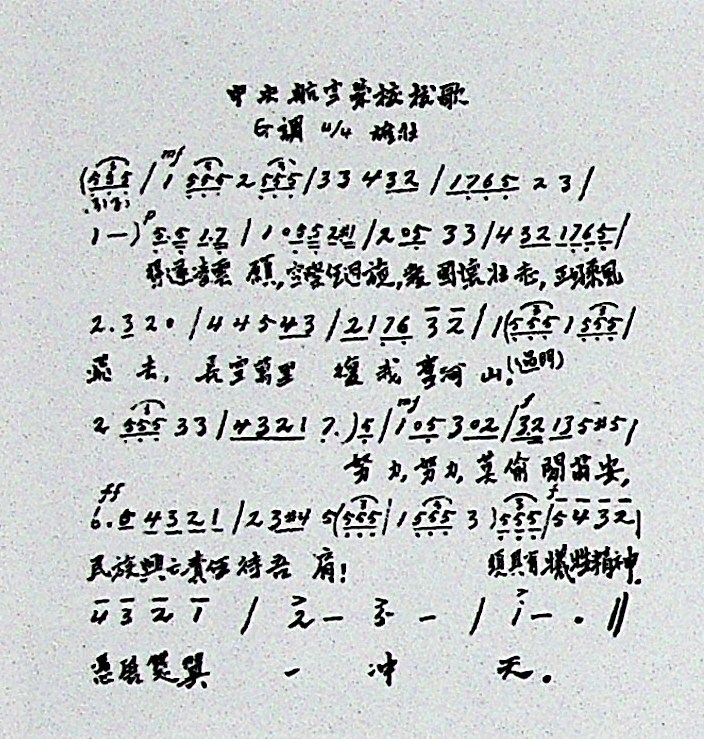 中央航空学校校歌
G調 4/4 雄壯
(555 / 1 555 2 555 / 3 3 4 32 / 1765 2 3 /
mf
1 — ) 5.5 1.7 / 1 055 / 2 05 33 / 4 32 1765 /
p
凌雲 願, 空 壯志, 乘風
2. 3 2 0 / 4 4 5 43 / 21 76 3 2 / 1 (555 1 555 /
去, 長空萬里 復我 河山! (過門)
2 555 33 / 4321 7. ) 5 / 1 05 3 02 / 32 13 5 #5 /
mf f
努力, 努力, 莫偷閒苟安,
6. 5 4 3 2 1 / 2 3 #4 5 (555 / 1 555 3 ) 555 / 5 4 3 2 /
ff f
民族興亡責任待吾肩! 須具有犧牲精神.
4 3 2 1 / 2 — 3 — / i — . //
憑展雙翼 一 冲 天。